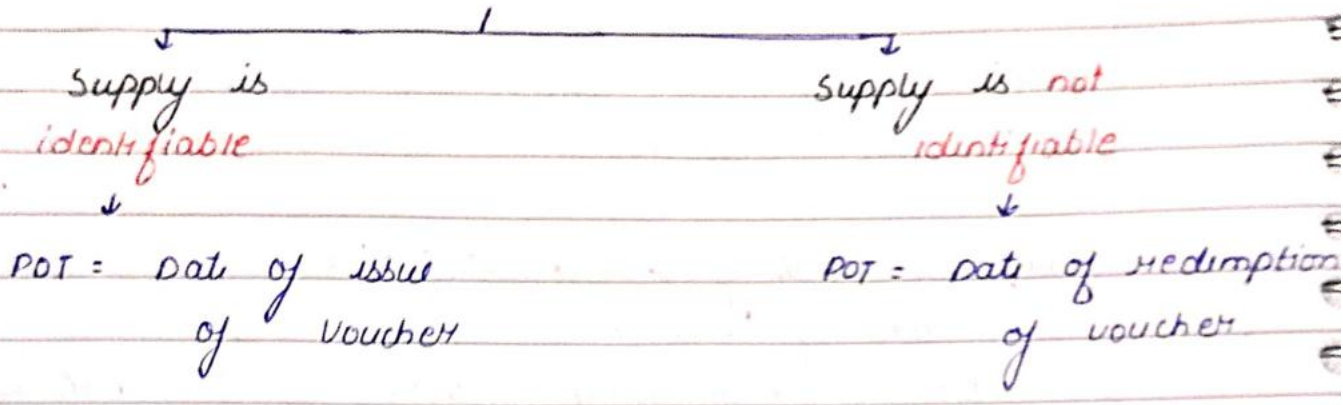 Supply is
identifiable
POT = Date of issue
of voucher
Supply is not
identifiable
POT = Date of redemption
of voucher